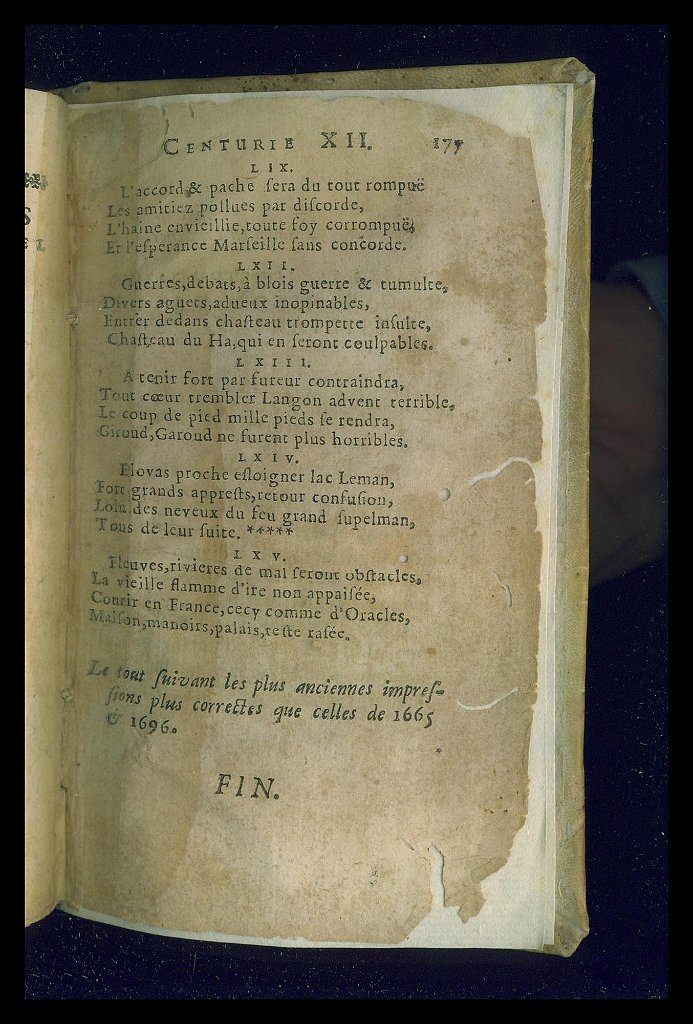 CENTURIE XII. 177
LIX.
L'accord & pache ſera du tout rompuë
Les amitiez pollues par diſcorde,
L'haine envieillie, toute foy corrompuë,
Et l'eſperance Marſeille ſans concorde.
LXII.
Guerres, debats, à blois guerre & tumulte,
Divers aguets, adueux inopinables,
Entrer dedans chaſteau trompette inſulte,
Chaſteau du Ha, qui en ſeront coulpables.
LXIII.
A tenir fort par fureur contraindra,
Tout cœur trembler Langon advent terrible,
Le coup de pied mille pieds ſe rendra,
Giroud, Garoud ne furent plus horribles.
LXIV.
Elovas proche eſloigner lac Leman,
Fort grands appreſts, retour confuſion,
Loin des neveux du feu grand ſupelman,
Tous de leur ſuite. *****
LXV.
Fleuves, rivieres de mal ſeront obſtacles,
La vieille flamme d'ire non appaiſée,
Courir en France, cecy comme d'Oracles,
Maiſon, manoirs, palais, teſte raſée.
Le tout ſuivant les plus anciennes impreſ-
ſions plus correctes que celles de 1665
& 1696.
FIN.